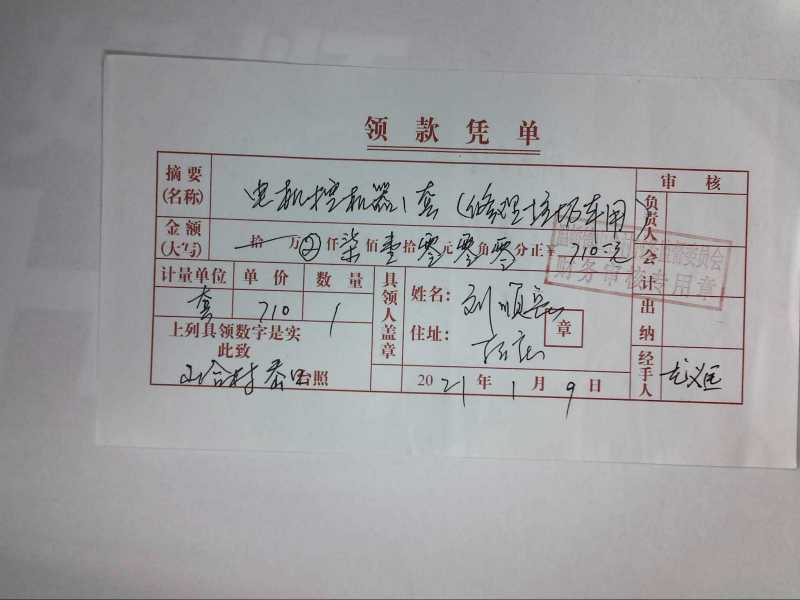 领款凭单
摘要(名称) 电机控机器1套(修理垃圾车用) 审核
金额(大写) 拾万②仟柒佰壹拾零元零角零分正¥710元
负责人
会计
财务审核专用章
计量单位 单价 数量
套 710 1
具领人盖章
姓名: 刘顺 章
住址:
出纳
上列具领数字是实
此致
村 台照
2021年1月9日
经手人